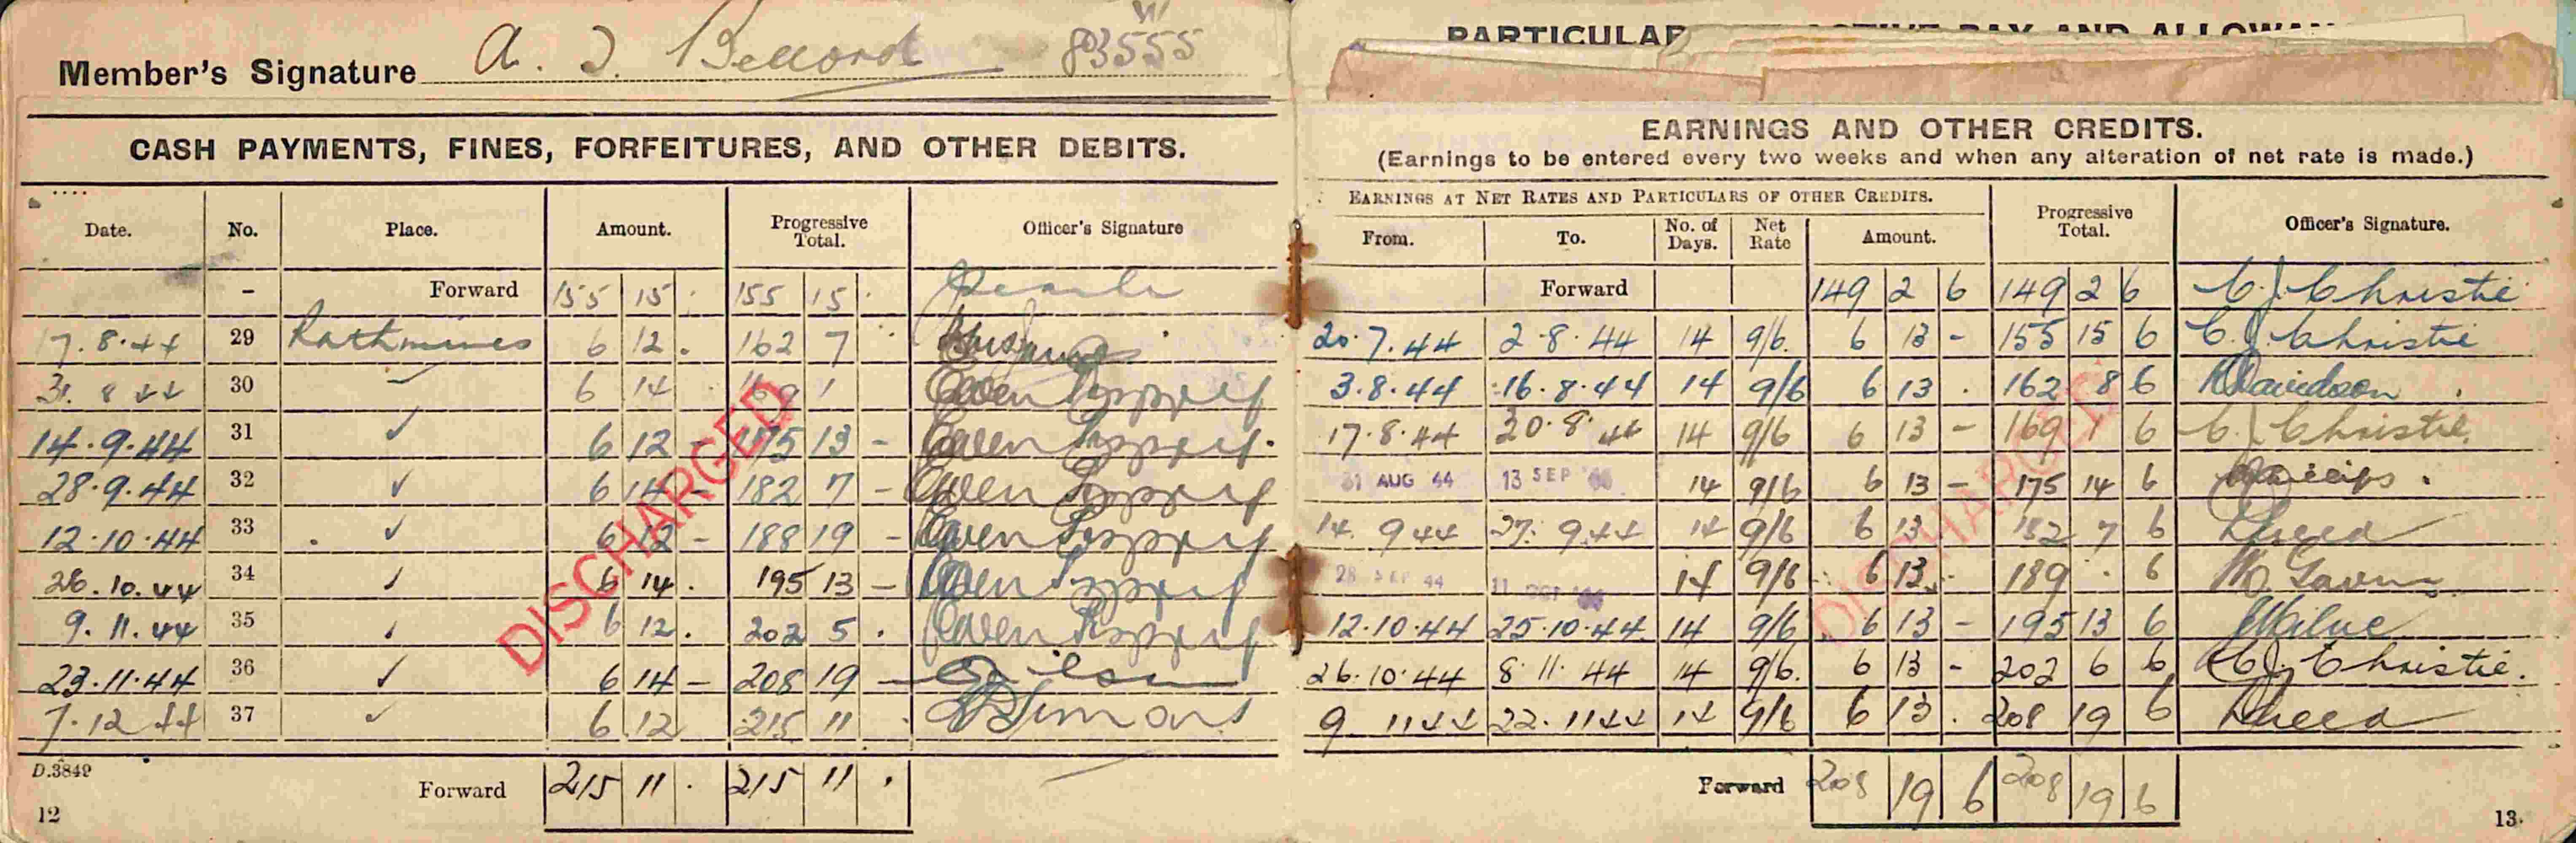 Member's Signature A. J. Bellord W 83555
CASH PAYMENTS, FINES, FORFEITURES, AND OTHER DEBITS.
Date. No. Place. Amount. Progressive Total. Officer's Signature
- Forward 155 15 . 155 15 .
17.8.44 29 Rathmines 6 12 . 162 7 .
31.8.44 30 6 14 . 169 1
14.9.44 31 ✓ 6 12 - 175 13 -
28.9.44 32 ✓ 6 14 - 182 7 -
12.10.44 33 ✓ 6 12 - 188 19 -
26.10.44 34 ✓ 6 14 . 195 13 -
9.11.44 35 ✓ 6 12 . 202 5 .
23.11.44 36 ✓ 6 14 - 208 19 -
7.12.44 37 ✓ 6 12 215 11 .
DISCHARGED
D.3849
Forward 215 11 . 215 11 .
12
PARTICULAR ACTIVE PAY AND ALLOWAN
EARNINGS AND OTHER CREDITS.
(Earnings to be entered every two weeks and when any alteration of net rate is made.)
EARNINGS AT NET RATES AND PARTICULARS OF OTHER CREDITS.
From. To. No. of Days. Net Rate Amount. Progressive Total. Officer's Signature.
Forward 149 2 6 149 2 6 C. J. Christie
20.7.44 2.8.44 14 9/6. 6 13 - 155 15 6 C. J. Christie
3.8.44 16.8.44 14 9/6 6 13 . 162 8 6 Davidson
17.8.44 30.8.44 14 9/6 6 13 - 169 1 6 C. J. Christie.
31 AUG 44 13 SEP 14 9/6 6 13 - 175 14 6
14.9.44 27.9.44 14 9/6 6 13 182 7 6
28 SEP 44 11 OCT 14 9/6 6 13 . 189 . 6
12.10.44 25.10.44 14 9/6 6 13 - 195 13 6 Milne
26.10.44 8.11.44 14 9/6. 6 13 - 202 6 6 C. J. Christie.
9 11 44 22.11 44 14 9/6 6 13 . 208 19 6
DISCHARGED
Forward 208 19 6 208 19 6
13.